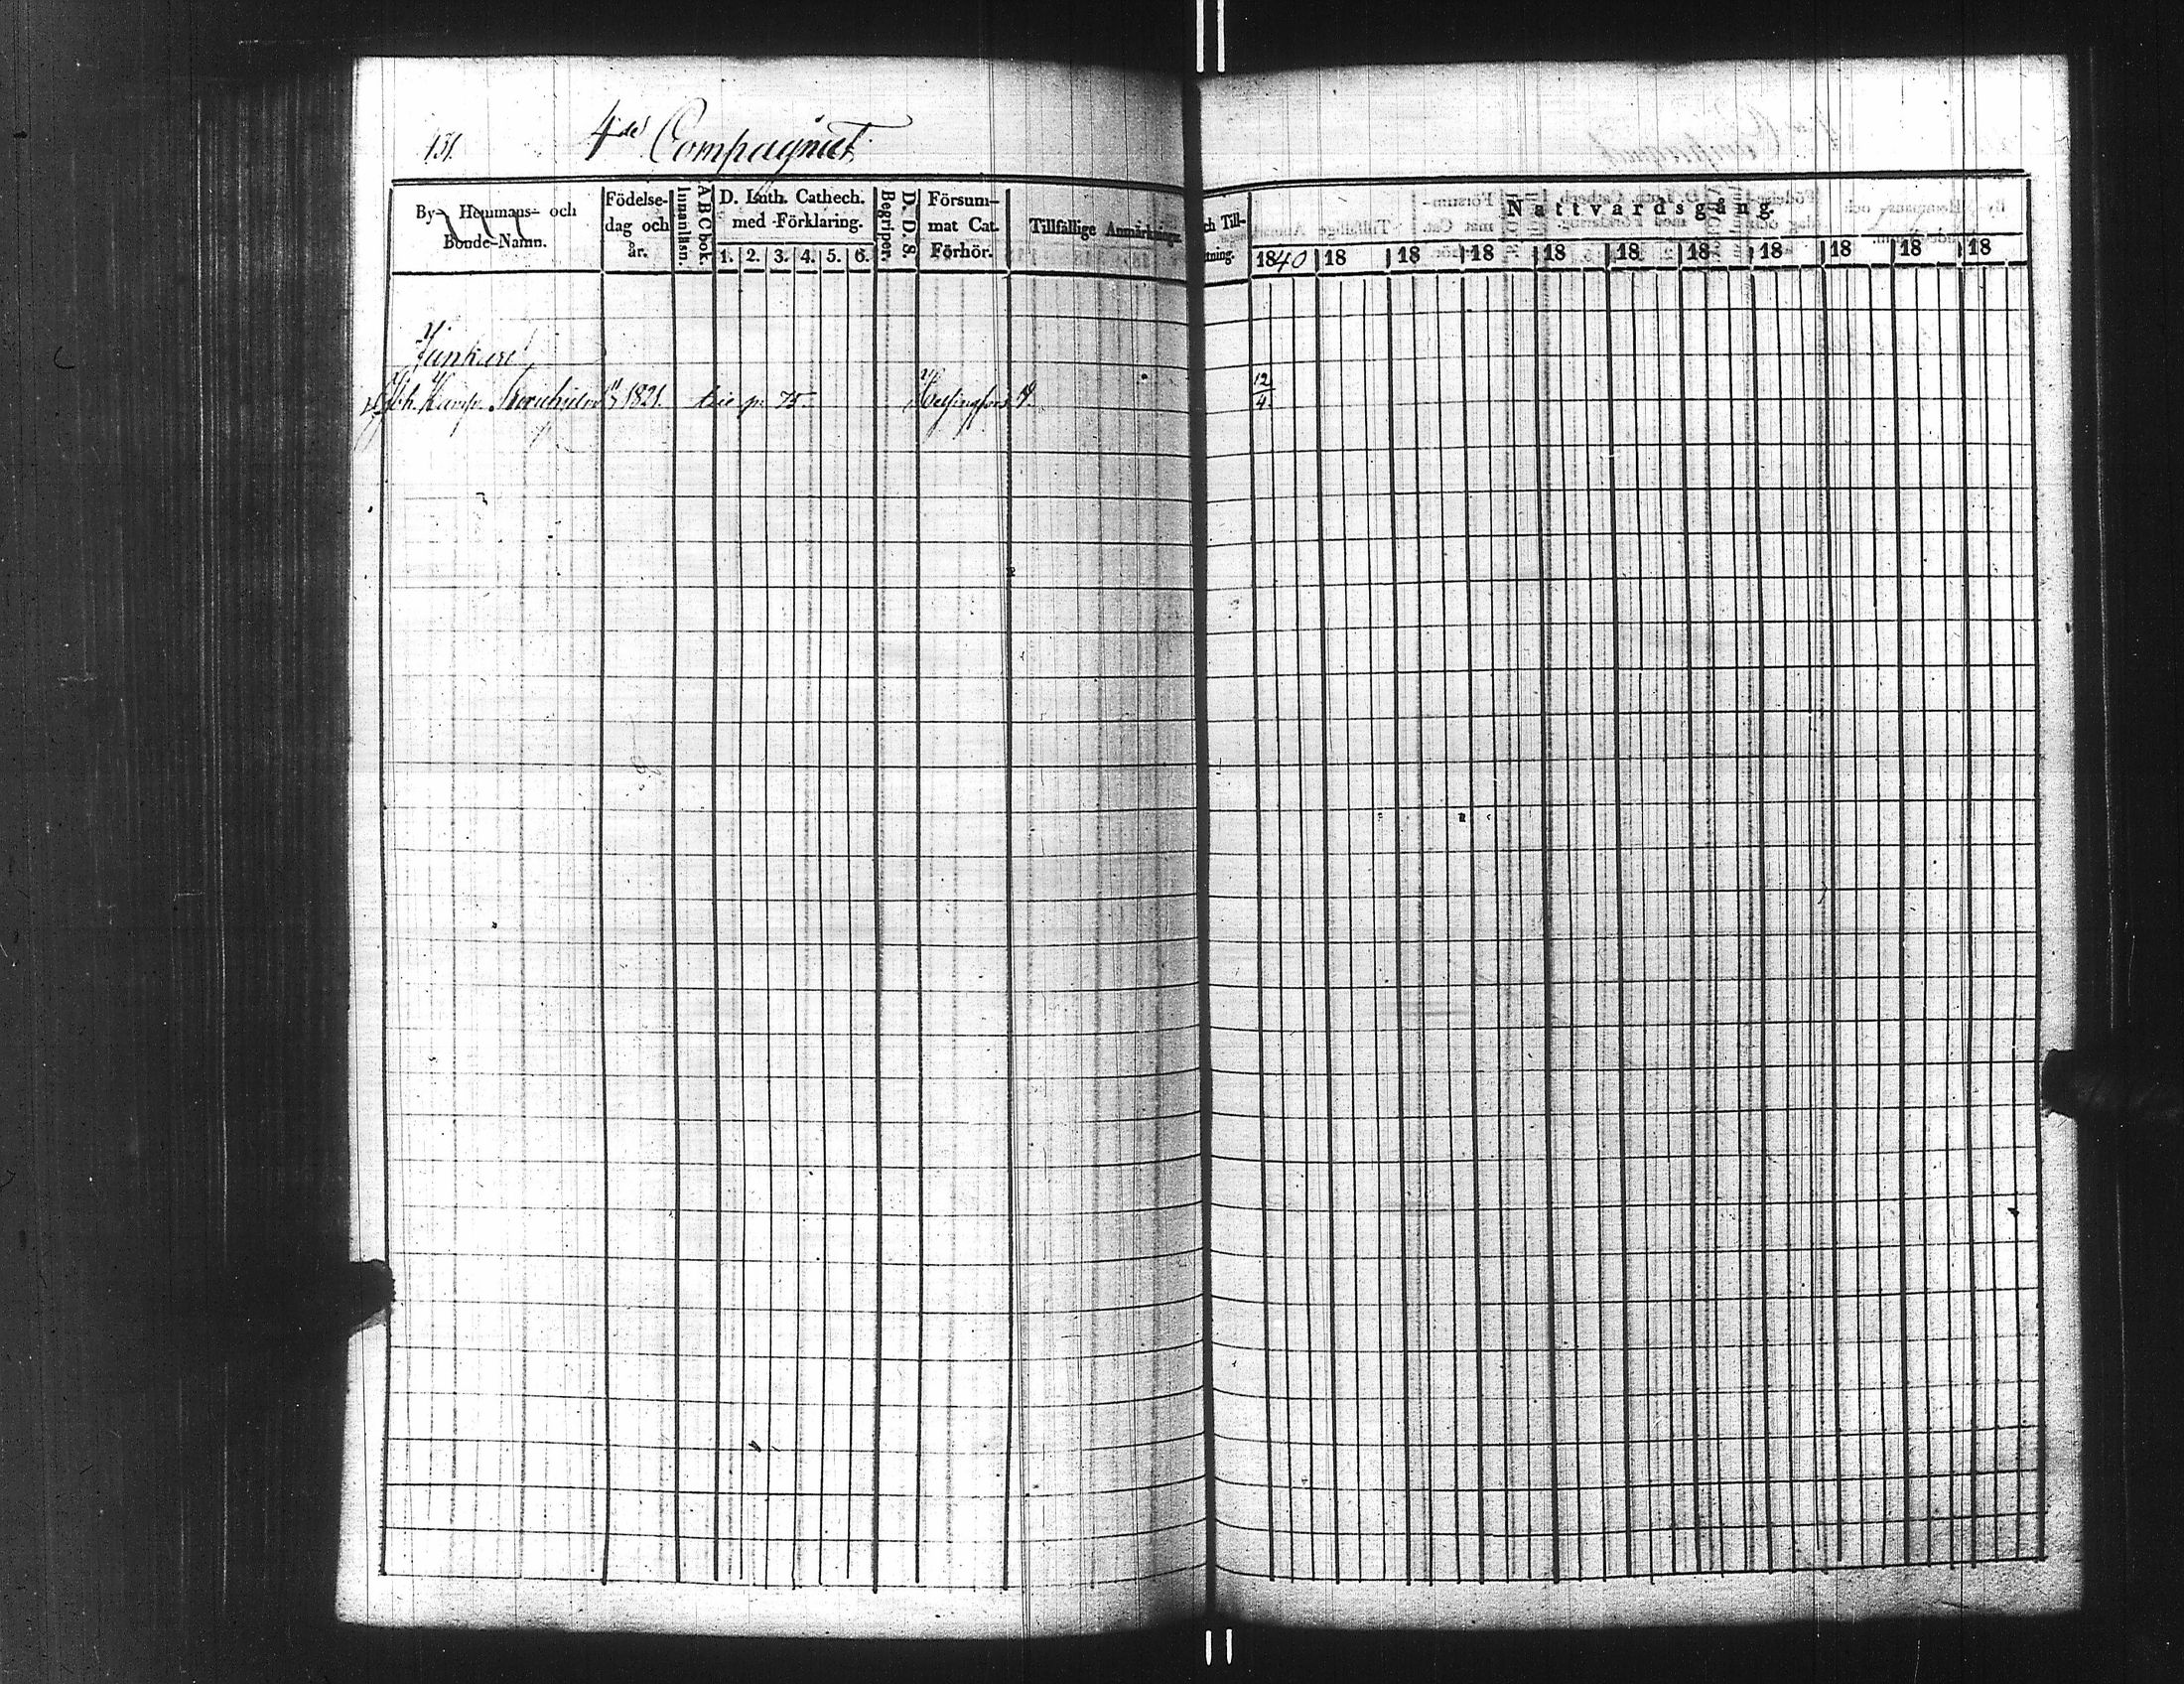 131.
4de Compagniet
By- Hemmans- och Bonde-Namn.
Födelse-dag och år.
Innanläsn.
A B C bok.
D. Luth. Cathech. med Förklaring.
1. 2. 3. 4. 5. 6.
Begriper.
D. D. S.
Försum-mat Cat. Förhör.
Tillfällige Anmärkningar
ch Till-
tning.
Nattvardsgång.
1840 18 18 18 18 18 18 18 18 18 18
Junkare
Joh. Kamp 1821. 75. Helsingfors
12/4